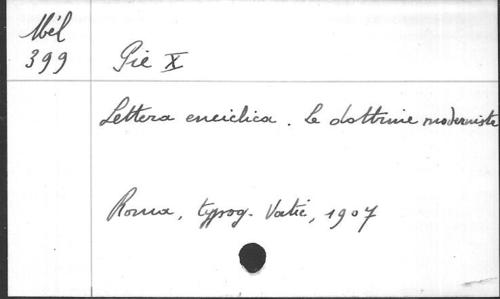 Mél
399
Pie X
Lettera enciclica. Le dottrine moderniste
Roma, typog. Vatic, 1907